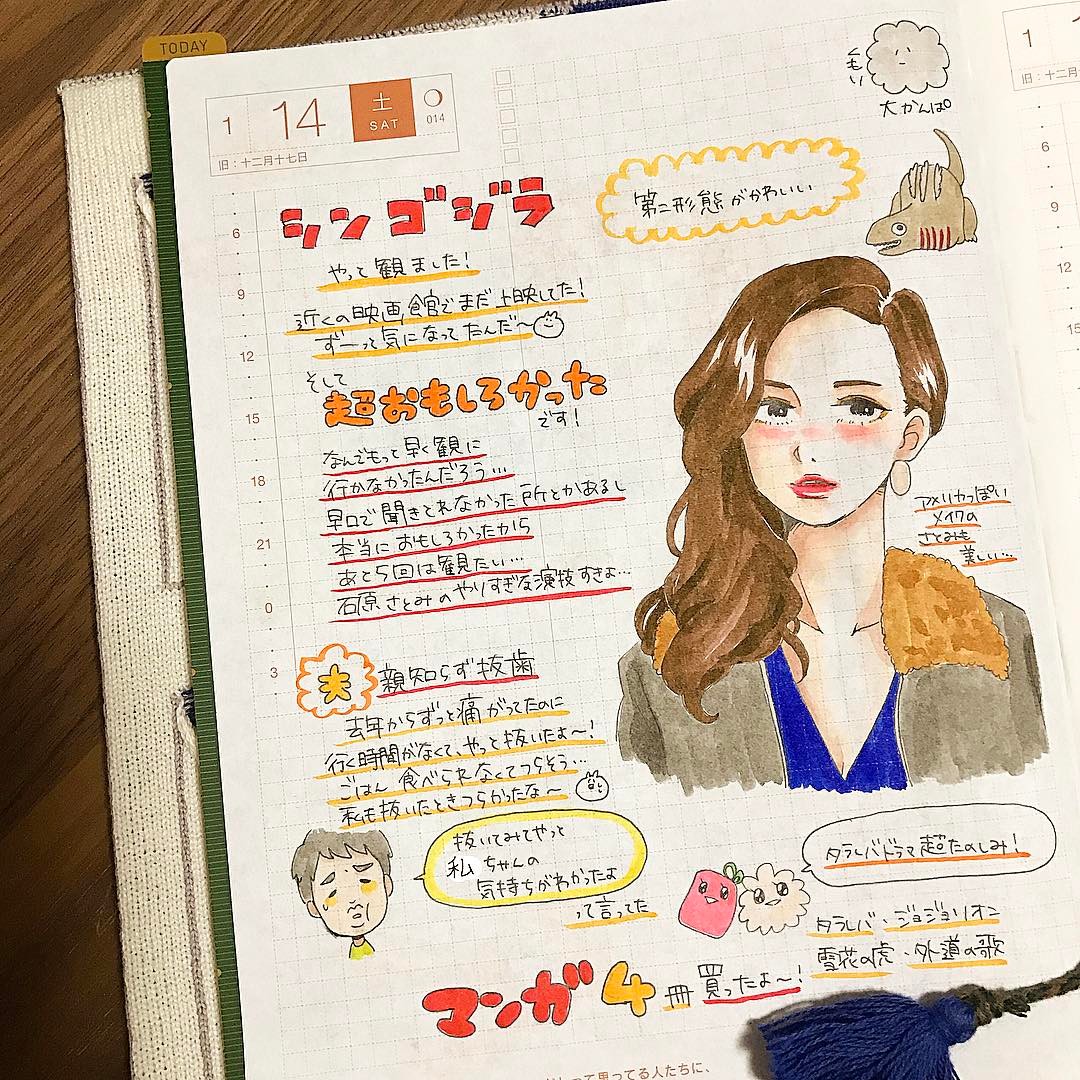 TODAY
1 14 土 SAT 014
旧：十二月十七日
くもり
大かんぱ
1
旧：十二月
シンゴジラ
第二形態がかわいい
やって観ました！
近くの映画館でまだ上映してた！
ずーって気になってたんだ〜
そして
超おもしろかった
です！
なんでもっと早く観に
行かなかったんだろう…
早口で聞きとれなかった所とかあるし
本当におもしろかったから
あと5回は観たい…
石原さとみのやりすぎな演技すきよ…
アメリカっぽい
メイクの
さとみも
美しい…
夫 親知らず抜歯
去年からずっと痛がってたのに
行く時間がなくて、やっと抜いたよ〜！
ごはん食べられなくてつらそう…
私も抜いたときつらかったな〜
抜いてみてやっと
私ちゃんの
気持ちがわかったよ
って言ってた
タラレバドラマ超たのしみ！
タラレバ・ジョジョリオン
雪花の虎・外道の歌
マンガ4冊買ったよ〜！
6
9
12
15
18
21
0
3
6
9
12
って思ってる人たちに、